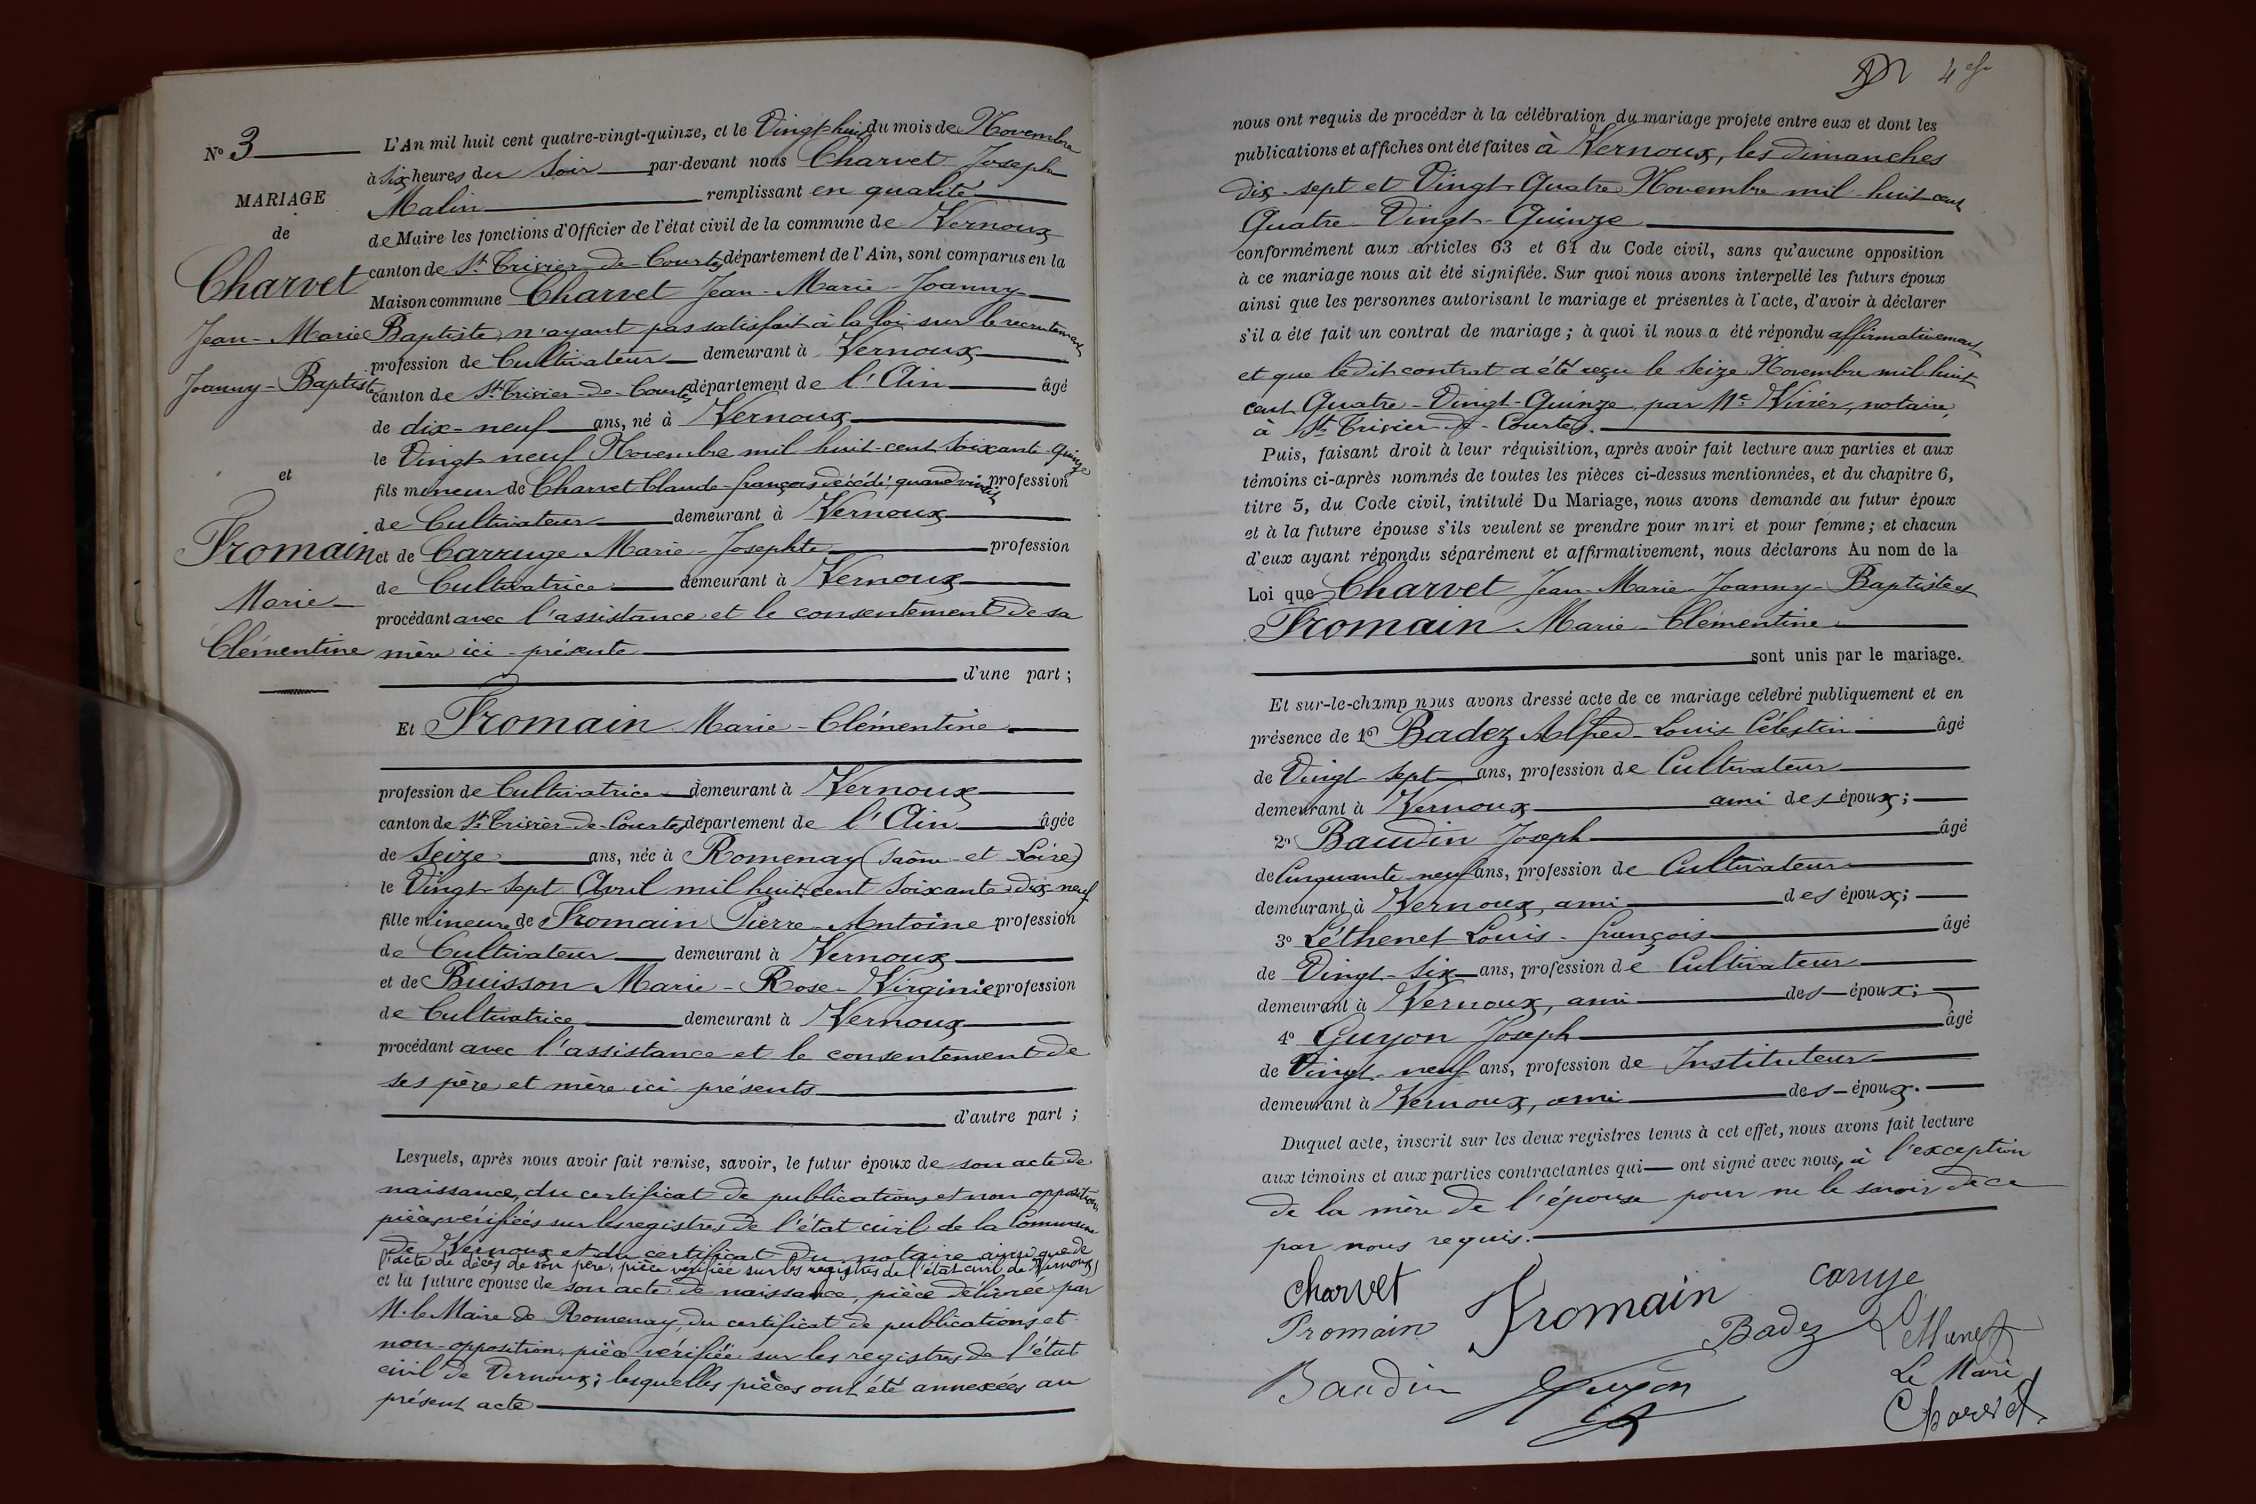 No 3
MARIAGE
de
Charvet
Jean-Marie
Joanny-Baptiste
et
Fromain
Marie
Clémentine
L'An mil huit cent quatre-vingt-quinze, et le Vingt-huit du mois de Novembre
à six heures du Soir par-devant nous Charvet Joseph
Malin remplissant en qualité
de Maire les fonctions d'Officier de l'état civil de la commune de Vernoux
canton de St Trivier-de-Courtes, département de l'Ain, sont comparus en la
Maison commune Charvet Jean-Marie-Joanny
Baptiste, n'ayant pas satisfait à la loi sur le recrutement
profession de Cultivateur demeurant à Vernoux
canton de St Trivier-de-Courtes département de l'Ain âgé
de dix-neuf ans, né à Vernoux
le Vingt neuf Novembre mil huit-cent soixante-quinze
fils mineur de Charvet Claude-françois décédé, quand vivait profession
de Cultivateur demeurant à Vernoux
et de Carruge Marie-Josephte profession
de Cultivatrice demeurant à Vernoux
procédant avec l'assistance et le consentement de sa
mère ici présente
d'une part ;
Et Fromain Marie-Clémentine
profession de Cultivatrice demeurant à Vernoux
canton de St Trivier-de-Courtes département de l'Ain âgée
de Seize ans, née à Romenay (Saône-et-Loire)
le Vingt-sept Avril mil huit cent soixante dix neuf
fille mineure de Fromain Pierre-Antoine profession
de Cultivateur demeurant à Vernoux
et de Buisson Marie-Rose-Virginie profession
de Cultivatrice demeurant à Vernoux
procédant avec l'assistance et le consentement de
ses père et mère ici présents
d'autre part ;
Lesquels, après nous avoir fait remise, savoir, le futur époux de son acte de
naissance, du certificat de publications et non opposition,
pièces vérifiées sur les registres de l'état civil de la Commune
de Vernoux et du certificat du notaire ainsi que de
l'acte de décès de son père, pièce vérifiée sur les registres de l'état civil de Vernoux,
et la future épouse de son acte de naissance, pièce délivrée par
M. le Maire de Romenay, du certificat de publications et
non-opposition, pièce vérifiée sur les registres de l'état
civil de Vernoux; lesquelles pièces ont été annexées au
présent acte
nous ont requis de procéder à la célébration du mariage projeté entre eux et dont les
publications et affiches ont été faites à Vernoux, les dimanches
dix-sept et Vingt-Quatre Novembre mil-huit-cent
Quatre-Vingt-Quinze
conformément aux articles 63 et 64 du Code civil, sans qu'aucune opposition
à ce mariage nous ait été signifiée. Sur quoi nous avons interpellé les futurs époux
ainsi que les personnes autorisant le mariage et présentes à l'acte, d'avoir à déclarer
s'il a été fait un contrat de mariage ; à quoi il nous a été répondu affirmativement
et que ledit contrat a été reçu le Seize Novembre mil huit
cent Quatre-Vingt-Quinze par Me Vivier, notaire,
à St Trivier-de-Courtes.
Puis, faisant droit à leur réquisition, après avoir fait lecture aux parties et aux
témoins ci-après nommés de toutes les pièces ci-dessus mentionnées, et du chapitre 6,
titre 5, du Code civil, intitulé Du Mariage, nous avons demandé au futur époux
et à la future épouse s'ils veulent se prendre pour mari et pour femme ; et chacun
d'eux ayant répondu séparément et affirmativement, nous déclarons Au nom de la
Loi que Charvet Jean-Marie-Joanny-Baptiste et
Fromain Marie-Clémentine
sont unis par le mariage.
Et sur-le-champ nous avons dressé acte de ce mariage célébré publiquement et en
présence de 1o Badez Alfred-Louis Célestin âgé
de Vingt-sept ans, profession de Cultivateur
demeurant à Vernoux ami des époux ;
2o Baudin Joseph âgé
de Cinquante neuf ans, profession de Cultivateur
demeurant à Vernoux, ami des époux ;
3o Léthenet Louis-françois âgé
de Vingt-six ans, profession de Cultivateur
demeurant à Vernoux, ami des époux ;
4o Guyon Joseph âgé
de Vingt-neuf ans, profession de Instituteur
demeurant à Vernoux, ami des époux.
Duquel acte, inscrit sur les deux registres tenus à cet effet, nous avons fait lecture
aux témoins et aux parties contractantes qui ont signé avec nous, à l'exception
de la mère de l'épouse pour ne le savoir de ce
par nous requis.
Charvet Fromain caruge
Fromain Badez Léthenet
Baudin Guyon Le Maire
Charvet